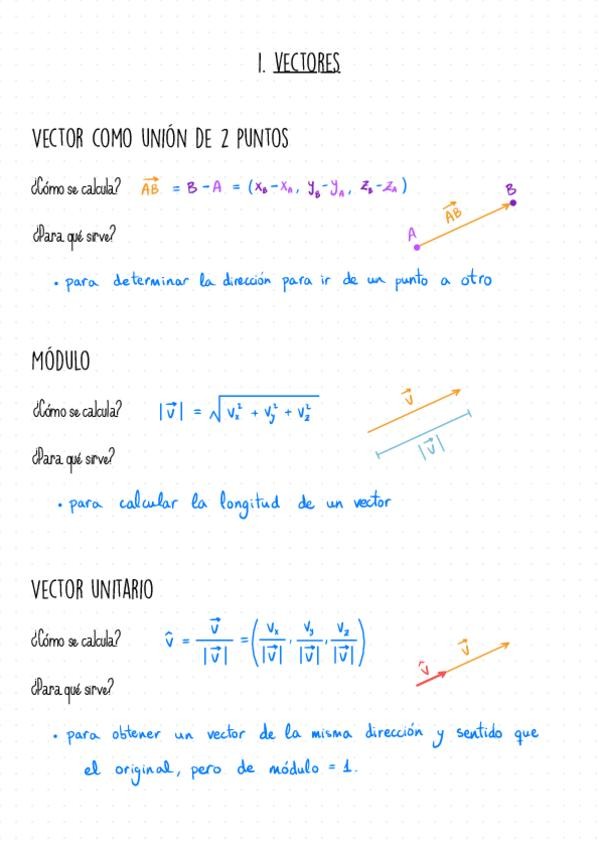 1. VECTORES
VECTOR COMO UNIÓN DE 2 PUNTOS
¿Cómo se calcula? \vec{AB} = B - A = (x_B - x_A, y_B - y_A, z_B - z_A)
B
\vec{AB}
A
¿Para qué sirve?
• para determinar la dirección para ir de un punto a otro
MÓDULO
¿Cómo se calcula? |\vec{v}| = \sqrt{v_x^2 + v_y^2 + v_z^2}
\vec{v}
|\vec{v}|
¿Para qué sirve?
• para calcular la longitud de un vector
VECTOR UNITARIO
¿Cómo se calcula? \hat{v} = \frac{\vec{v}}{|\vec{v}|} = \left(\frac{v_x}{|\vec{v}|}, \frac{v_y}{|\vec{v}|}, \frac{v_z}{|\vec{v}|}\right)
\hat{v} \vec{v}
¿Para qué sirve?
• para obtener un vector de la misma dirección y sentido que
el original, pero de módulo = 1.